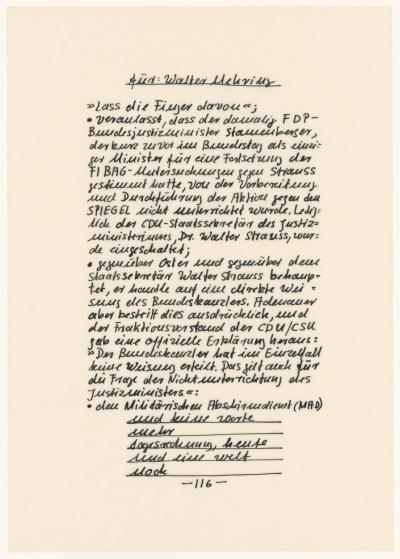 für: Walter Mehring
»Lass die Finger davon«;
• veranlasst, dass der damalig FDP-
Bundesjustizminister Stammberger,
der kurz zuvor im Bundestag als eini=
ger Minister für eine Fortsetzung der
FIBAG-Untersuchungen gegen Strauss
gestimmt hatte, von der Vorbereitung
und Durchführung der Aktion gegen den
SPIEGEL nicht unterrichtet wurde. Ledig=
lich der CDU-Staatssekretär des Justiz=
ministeriums, Dr. Walter Strauss, wur=
de eingeschaltet;
• gegenüber Oster und gegenüber dem
Staatssekretär Walter Strauss behaup=
tet, er handle auf eine direkte Wei=
sung des Bundeskanzlers. Adenauer
aber bestritt dies ausdrücklich, und
der Fraktionsvorstand der CDU/CSU
gab eine offizielle Erklärung heraus:
»Der Bundeskanzler hat im Einzelfall
keine Weisung erteilt. Das gilt auch für
die Frage der Nichtunterrichtung des
Justizministers«:
• den Militärischen Abschirmdienst (MAD)
und keine worte
mehr
tagesordnung, heute
und eine welt
noch
—116—